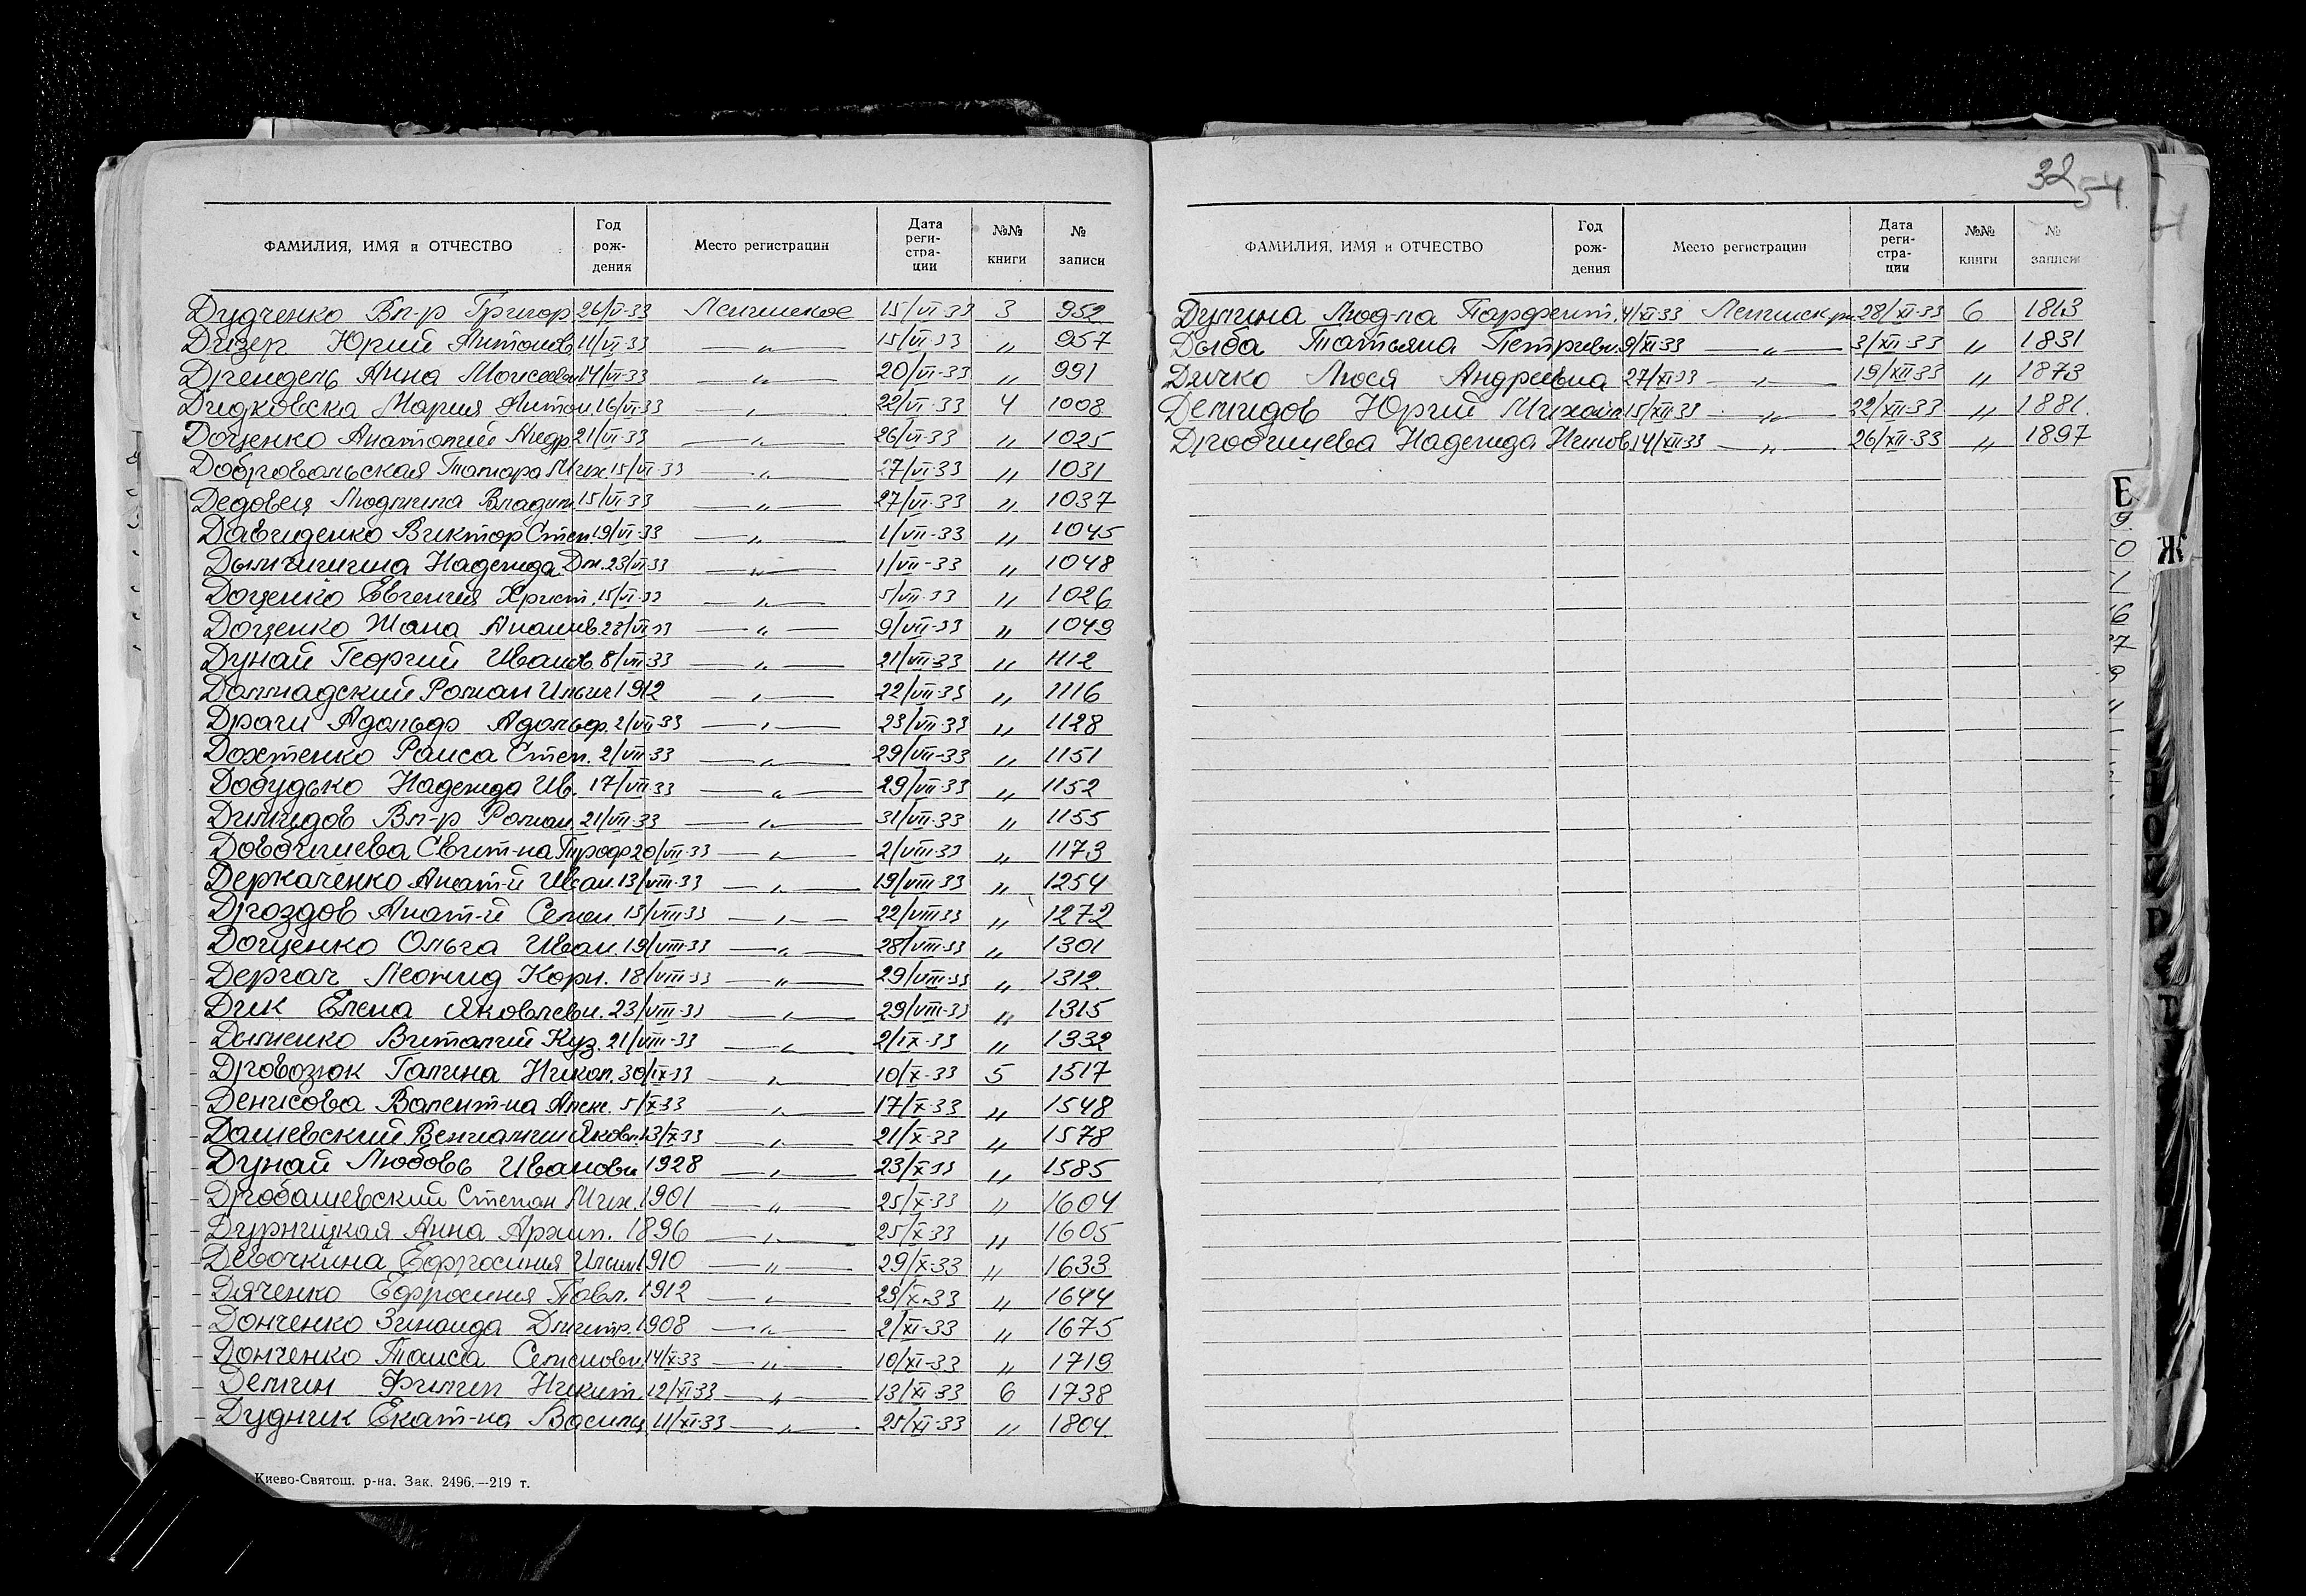 32 54.
ФАМИЛИЯ, ИМЯ и ОТЧЕСТВО Год рождения Место регистрации Дата регистрации №№ книги № записи
Дудченко Вл-р Григор. 26/V-33 Ленинское 15/VI-33 3 952
Дизер Юрий Антонов. 11/VI-33 —„— 15/VI-33 „ 957
Дрендель Анна Моисеевн. 14/VI-33 —„— 20/VI-33 „ 991
Дидковска Мария Антон. 16/VI-33 —„— 22/VI-33 4 1008
Доценко Анатолий Андр. 21/VI-33 —„— 26/VI-33 „ 1025
Добровольская Тамара Мих. 15/VI-33 —„— 27/VI-33 „ 1031
Людмила Владим. 15/VI-33 —„— 27/VI-33 „ 1037
Давиденко Виктор Степ. 19/VI-33 —„— 1/VII-33 „ 1045
Надежда Дм. 23/VI-33 —„— 1/VII-33 „ 1048
Доценко Евгения Христ. 15/VI-33 —„— 5/VII-33 „ 1026
Доценко Жана 28/VI-33 —„— 9/VII-33 „ 1049
Дунай Георгий Иванов. 8/VII-33 —„— 21/VII-33 „ 1112
Далмадский Роман Ильич 1912 —„— 22/VII-33 „ 1116
Драги Адольф Адольф. 2/VII-33 —„— 23/VII-33 „ 1128
Дохтенко Раиса Степ. 2/VII-33 —„— 29/VII-33 „ 1151
Добудько Надежда Ив. 17/VII-33 —„— 29/VII-33 „ 1152
Димидов Вл-р Роман. 21/VII-33 —„— 31/VII-33 „ 1155
Свит-на 20/VII-33 —„— 2/VIII-33 „ 1173
Деркаченко Анат-й Иван. 13/VIII-33 —„— 19/VIII-33 „ 1254
Дроздов Анат-й Семен. 13/VIII-33 —„— 22/VIII-33 „ 1272
Доценко Ольга Иван. 19/VIII-33 —„— 28/VIII-33 „ 1301
Дергач Леонид Корн. 18/VIII-33 —„— 29/VIII-33 „ 1312.
Дик Елена Яковлевн. 23/VIII-33 —„— 29/VIII-33 „ 1315
Дыменко Виталий Куз. 21/VIII-33 —„— 2/IX-33 „ 1332
Дровозюк Галина Никол. 30/IX-33 —„— 10/X-33 5 1517
Денисова Валент-на Алек. 5/X-33 —„— 17/X-33 „ 1548
Дашевский Вениамин Яковл. 13/X-33 —„— 21/X-33 „ 1578
Дунай Любовь Ивановн 1928 —„— 23/X-33 „ 1585
Дробашевский Степан Мих. 1901 —„— 25/X-33 „ 1604
Дурницкая Анна Архип. 1896 —„— 25/X-33 „ 1605
Девочкина Ефросиния Ильин 1910 —„— 29/X-33 „ 1633
Дяченко Ефросиния Павл. 1912 —„— 29/X-33 „ 1644
Донченко Зинаида Дмитр. 1908 —„— 2/XI-33 „ 1675
Донченко Таиса Семеновн. 14/X-33 —„— 10/XI-33 „ 1719
Демин Филип Никит. 12/XI-33 —„— 13/XI-33 6 1738
Дудник Екат-на Василь 11/XI-33 —„— 25/XI-33 „ 1804.
Киево-Святош. р-на. Зак. 2496.—219 т.
ФАМИЛИЯ, ИМЯ и ОТЧЕСТВО Год рождения Место регистрации Дата регистрации №№ книги № записи
Люд-ла Парфент. 4/XI-33 Ленинск. рн. 28/XI-33 6 1813
Дыба Татьяна Петривн. 9/XI-33 —„— 3/XII-33 „ 1831
Дячко Люся Андреевна 27/XI-33 —„— 19/XII-33 „ 1873
Демидов Юрий Михайл. 15/XII-33 —„— 22/XII-33 „ 1881.
Дробчишева Надежда Ников. 14/XII-33 —„— 26/XII-33 „ 1897
Е
Ж